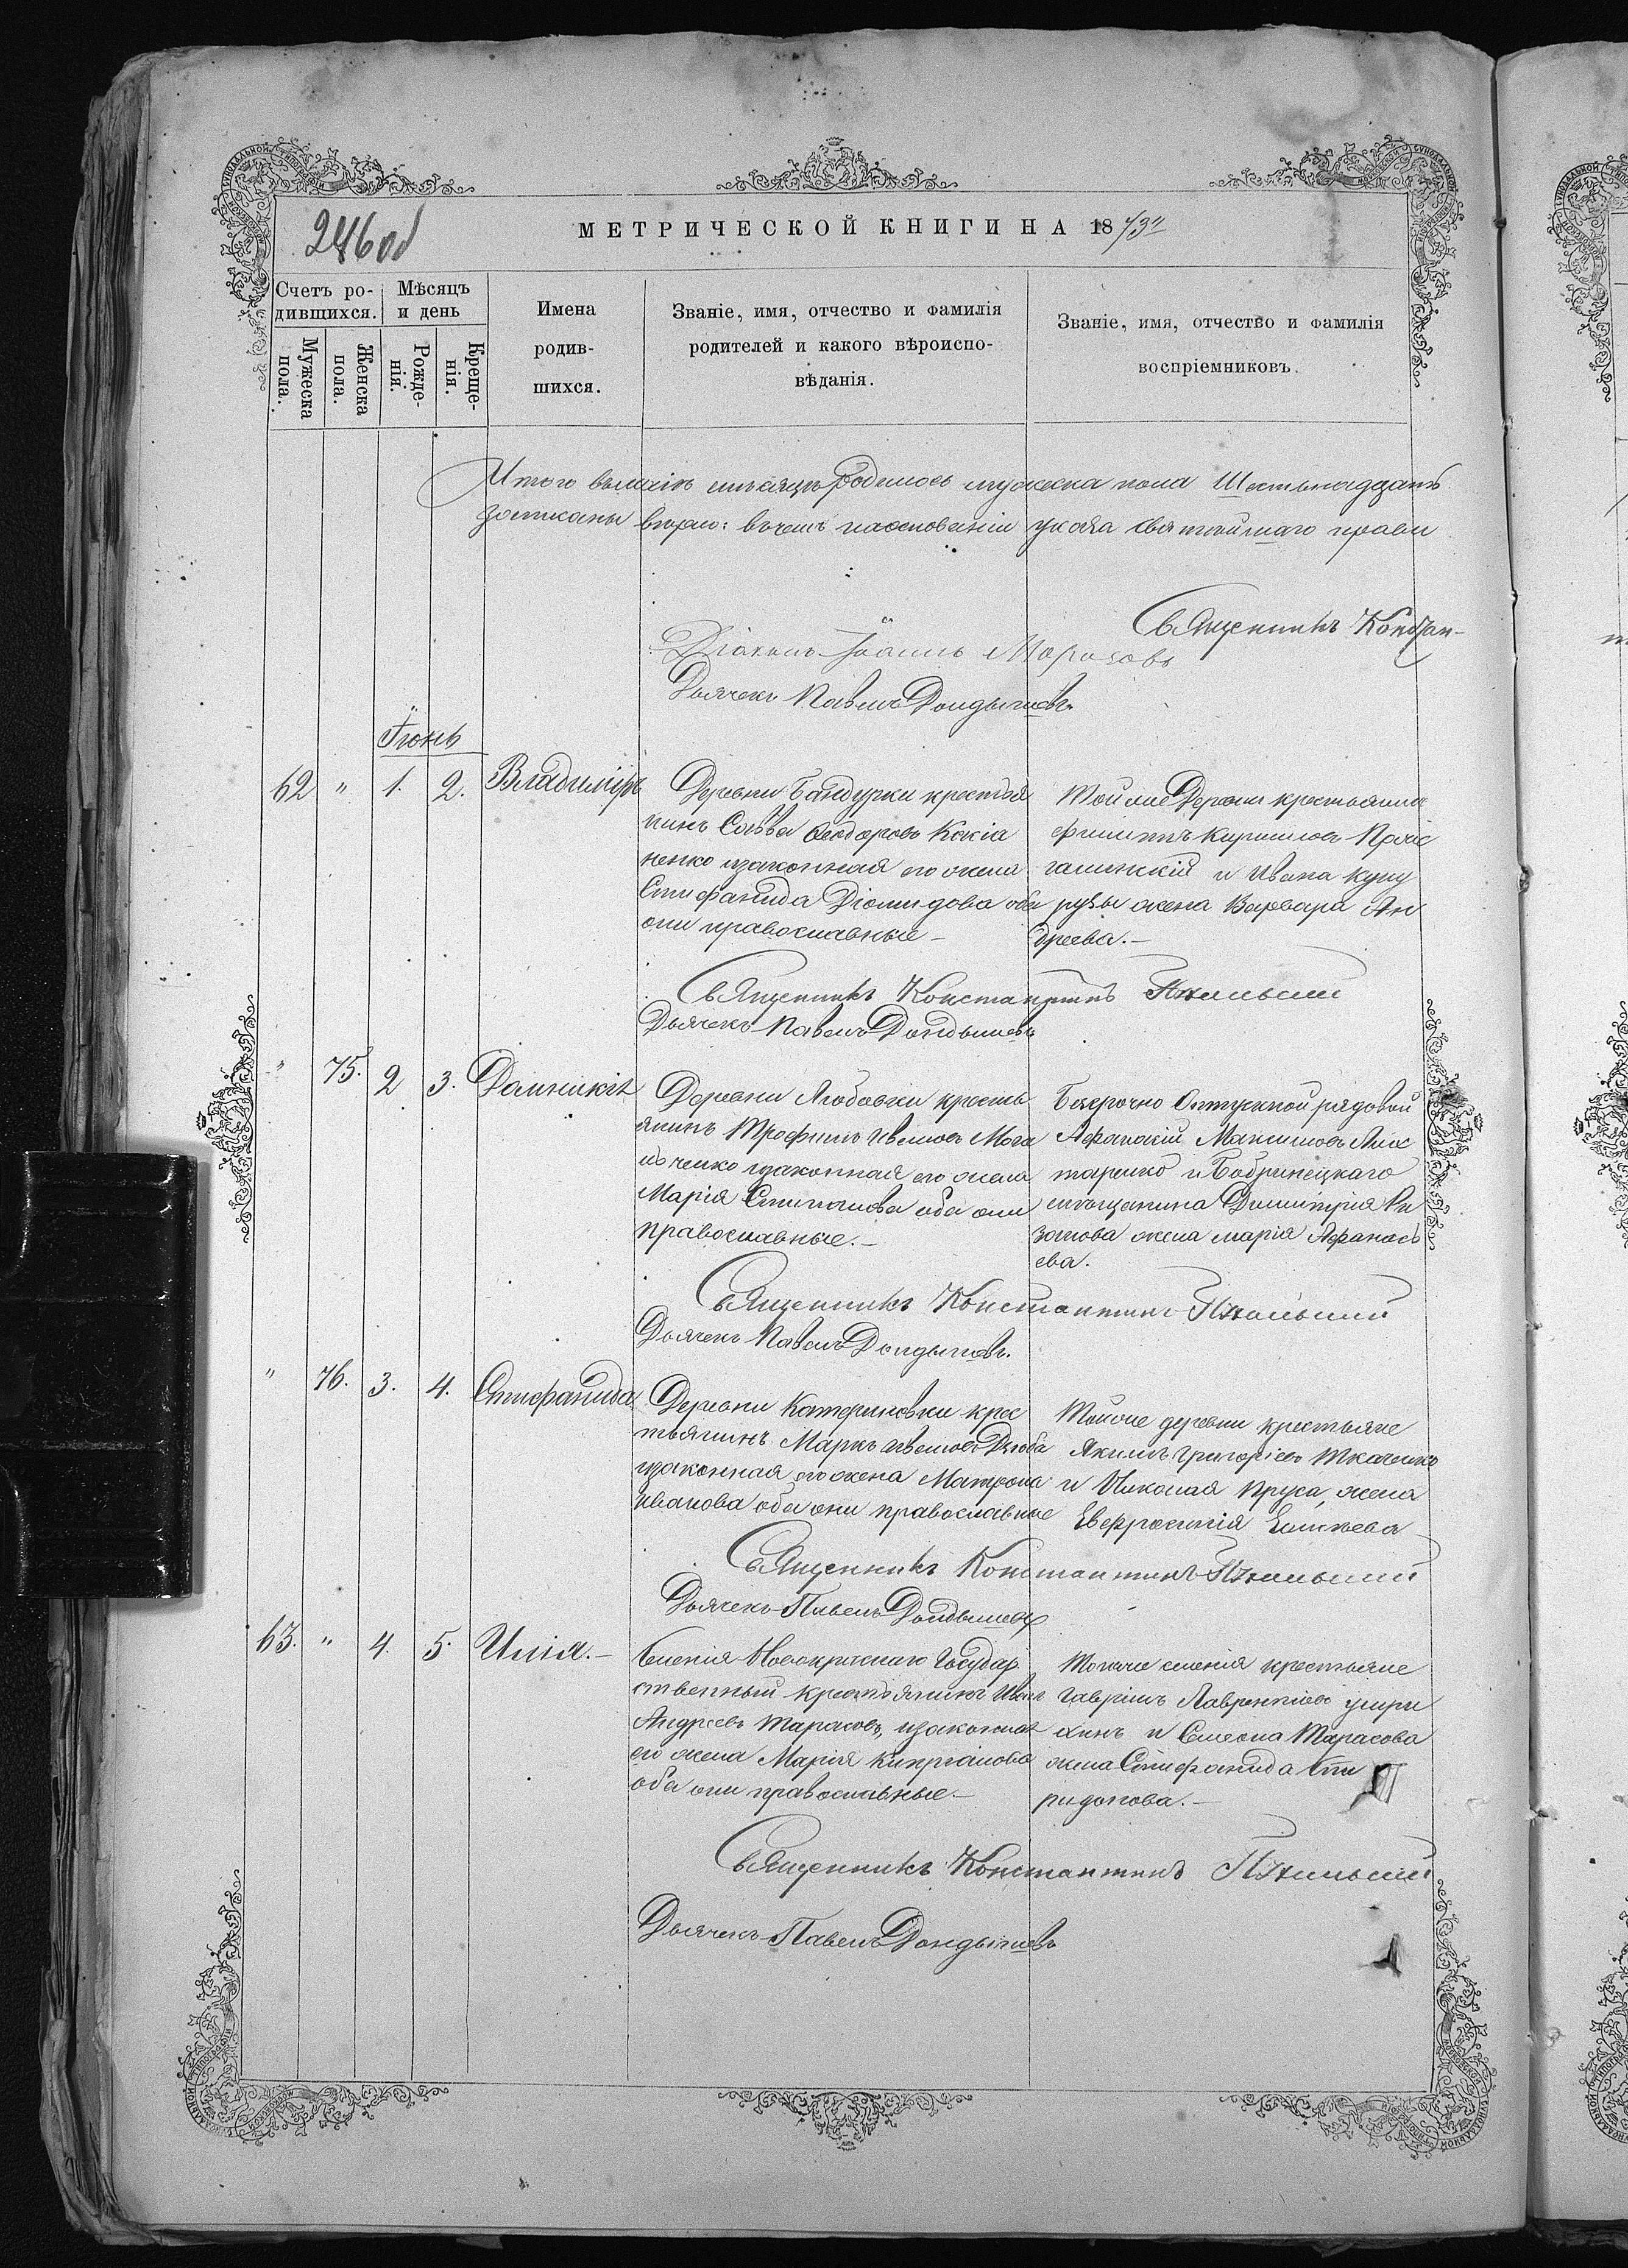 246 об
МЕТРИЧЕСКОЙ КНИГИ НА 1873й
Счетъ родившихся.
Мужеска пола.
Женска пола.
Мѣсяцъ и день
Рожденія.
Крещенія.
Имена родившихся.
Званіе, имя, отчество и фамилія родителей и какого вѣроисповѣданія.
Званіе, имя, отчество и фамилія воспріемниковъ.
Итого въ маіѣ мѣсяцѣ родилось мужеска пола Шестьнадцать
записаны вѣрно: въ чемъ на основаніи указа Святѣйшаго прави
Священникъ Констан-
Діаконъ Іоаннъ Морозовъ
Дьячекъ Павелъ
Іюнь
62 " 1. 2. Владиміръ
Деревни Бандурки крестья
нинъ Савва Ѳеодоровъ
ненко и законная его жена
Стифанида Діомидова оба
они православные –
Той же Деревни крестьянинъ
Филиппъ Кирилловъ
и Ивана
жена Варвара Ан
дреева. –
Священникъ Константинъ
Дьячекъ Павелъ
" 75. 2 3. Домникія
Деревни Любовки кресть
янинъ Трофимъ Ивановъ Мога
ы ченко и законная его жена
Марія Степанова оба они
православные. –
Безсрочно Отпускной рядовой
Афанасій Максимовъ
и Бобринецкаго
мѣщанина Димитрія
жена Марія Афанась
ева.
Священникъ Константинъ
Дьячекъ Павелъ
" 76. 3. 4. Стифанида
Деревни Катериновки крес
тьянинъ Маркъ Ивановъ Дзюба
и законная его жена Матрона
Иванова оба они православные
Той же деревни крестьяне
Якимъ Григоріевъ Ткаченко
и Николая Пруса, жена
Евфросинія
Священникъ Константинъ
Дьячекъ Павелъ
63. " 4. 5. Илія. –
Селенія Новокраснаго Государ
ственный крестьянинъ Иванъ
Андреевъ Тарасовъ, и законная
его жена Марія Кипріанова
оба они православные –
Того же селенія крестьяне
Гавріилъ Лаврентіевъ
и Симеона Тарасова
жена Стифанида Спи
ридонова. –
Священникъ Константинъ
Дьячекъ Павелъ